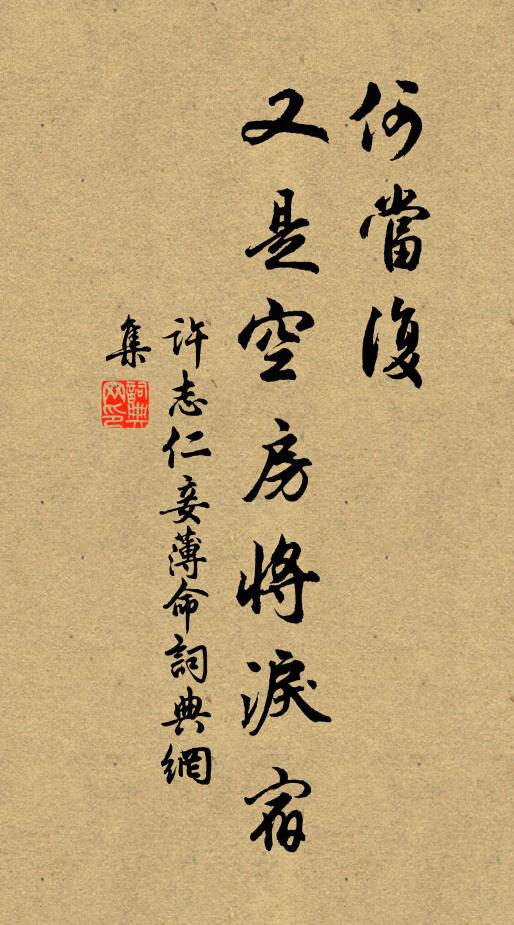 何當復
又是空房將淚宿
許志仁妾薄命詞典網
集
詞典
网印